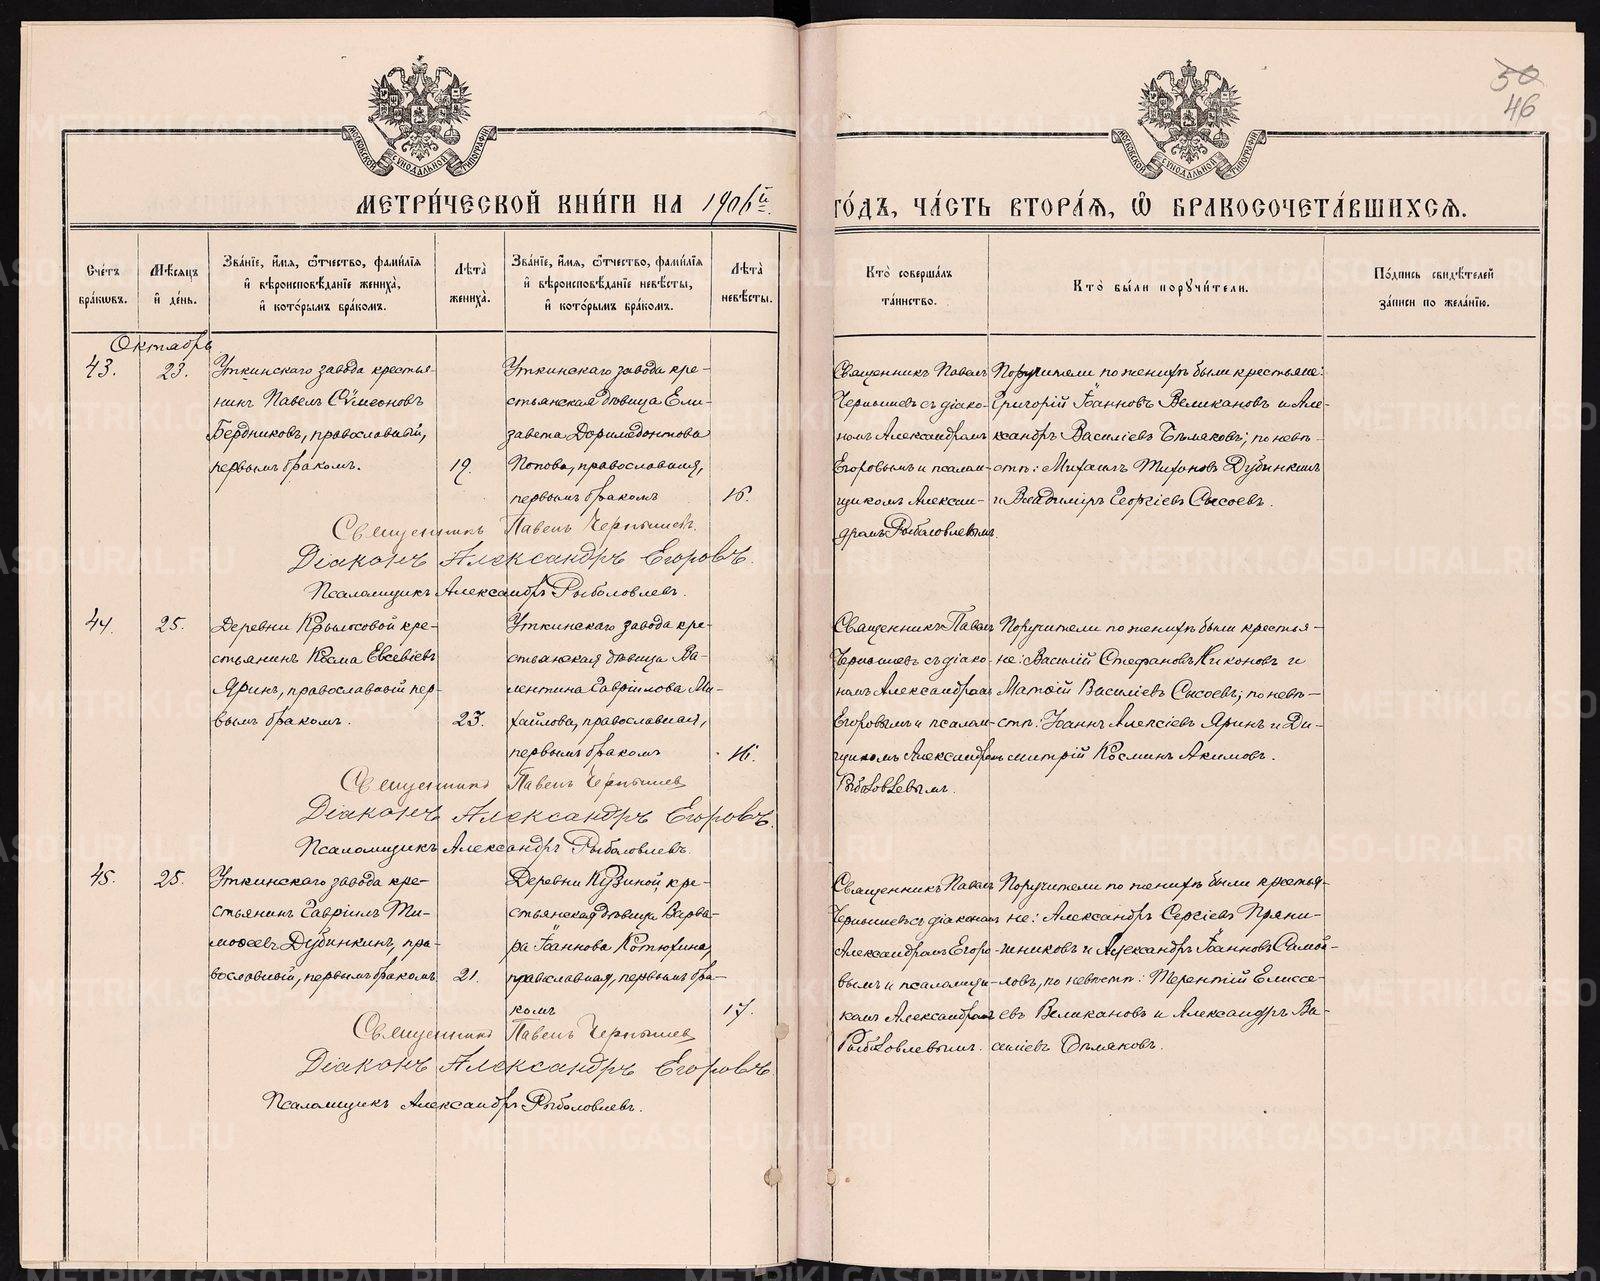 50
46
МОСКОВСКОЙ СѴНОДАЛЬНОЙ ТИПОГРАФІИ
МОСКОВСКОЙ СѴНОДАЛЬНОЙ ТИПОГРАФІИ
МЕТРИ́ЧЕСКОЙ КНИ́ГИ НА 1906й
ГО́ДЪ, ЧА́СТЬ ВТОРА́Ѧ, Ѽ БРАКОСОЧЕТА́ВШИХСѦ.
Счетъ
браковъ.
Мѣсяцъ
и день.
Званіе, имя, отчество, фамилія
и вѣроисповѣданіе жениха,
и которымъ бракомъ.
Лѣта
жениха.
Званіе, имя, отчество, фамилія
и вѣроисповѣданіе невѣсты,
и которымъ бракомъ.
Лѣта
невѣсты.
Кто совершалъ
таинство.
Кто были поручители.
Подпись свидѣтелей
записи по желанію.
Октябрь
43.
23.
Уткинскаго завода крестья-
нинъ Павелъ Сѵмеоновъ
Бердниковъ, православный,
первымъ бракомъ.
19.
Уткинскаго завода кре-
стьянская дѣвица Ели-
завета Доримедонтова
Попова, православная,
первымъ бракомъ
16.
Священникъ Павелъ
Чернышевъ съ діако-
номъ Александромъ
Егоровымъ и псалом-
щикомъ Алексан-
дромъ Рыболовлевымъ.
Поручители по женихѣ были крестьяне:
Григорій Іоанновъ Великановъ и Але-
ксандръ Василіевъ Бѣляковъ; по невѣ-
стѣ: Михаилъ Тихоновъ Дубинкинъ
и Владиміръ Георгіевъ Сысоевъ.
Священникъ Павелъ Чернышевъ.
Діаконъ Александръ Егоровъ.
Псаломщикъ Александръ Рыболовлевъ.
44.
25.
Деревни Крылосовой кре-
стьянинъ Косма Евсевіевъ
Яринъ, православный пер-
вымъ бракомъ.
23.
Уткинскаго завода кре-
стьянская дѣвица Ва-
лентина Гавріилова Ми-
хайлова, православная,
первымъ бракомъ
16.
Священникъ Павелъ
Чернышевъ съ діако-
номъ Александромъ
Егоровымъ и псалом-
щикомъ Александромъ
Рыболовлевымъ.
Поручители по женихѣ были крестья-
не: Василій Стефановъ Никоновъ и
Матѳій Василіевъ Сысоевъ; по невѣ-
стѣ: Іоаннъ Алексіевъ Яринъ и Ди-
митрій Косминъ Акимовъ.
Священникъ Павелъ Чернышев
Діаконъ Александръ Егоровъ.
Псаломщикъ Александръ Рыболовлевъ.
45.
25.
Уткинскаго завода кре-
стьянинъ Гавріилъ Ти-
моѳеевъ Дубинкинъ, пра-
вославный, первымъ бракомъ
21.
Деревни Кузиной, кре-
стьянская дѣвица Варва-
ра Іоаннова Котюхина,
православная, первымъ бра-
комъ
17.
Священникъ Павелъ
Чернышевъ съ діакономъ
Александромъ Егоро-
вымъ и псаломщи-
комъ Александромъ
Рыболовлевымъ.
Поручители по женихѣ были крестья-
не: Александръ Сергіевъ Пряни-
шниковъ и Александръ Іоанновъ Самой-
ловъ, по невѣстѣ: Терентій Елисе-
евъ Великановъ и Александръ Ва-
силіевъ Бѣляковъ.
Священникъ Павелъ Чернышев
Діаконъ Александръ Егоровъ.
Псаломщикъ Александръ Рыболовлевъ.
METRIKI.GASO-URAL.RU